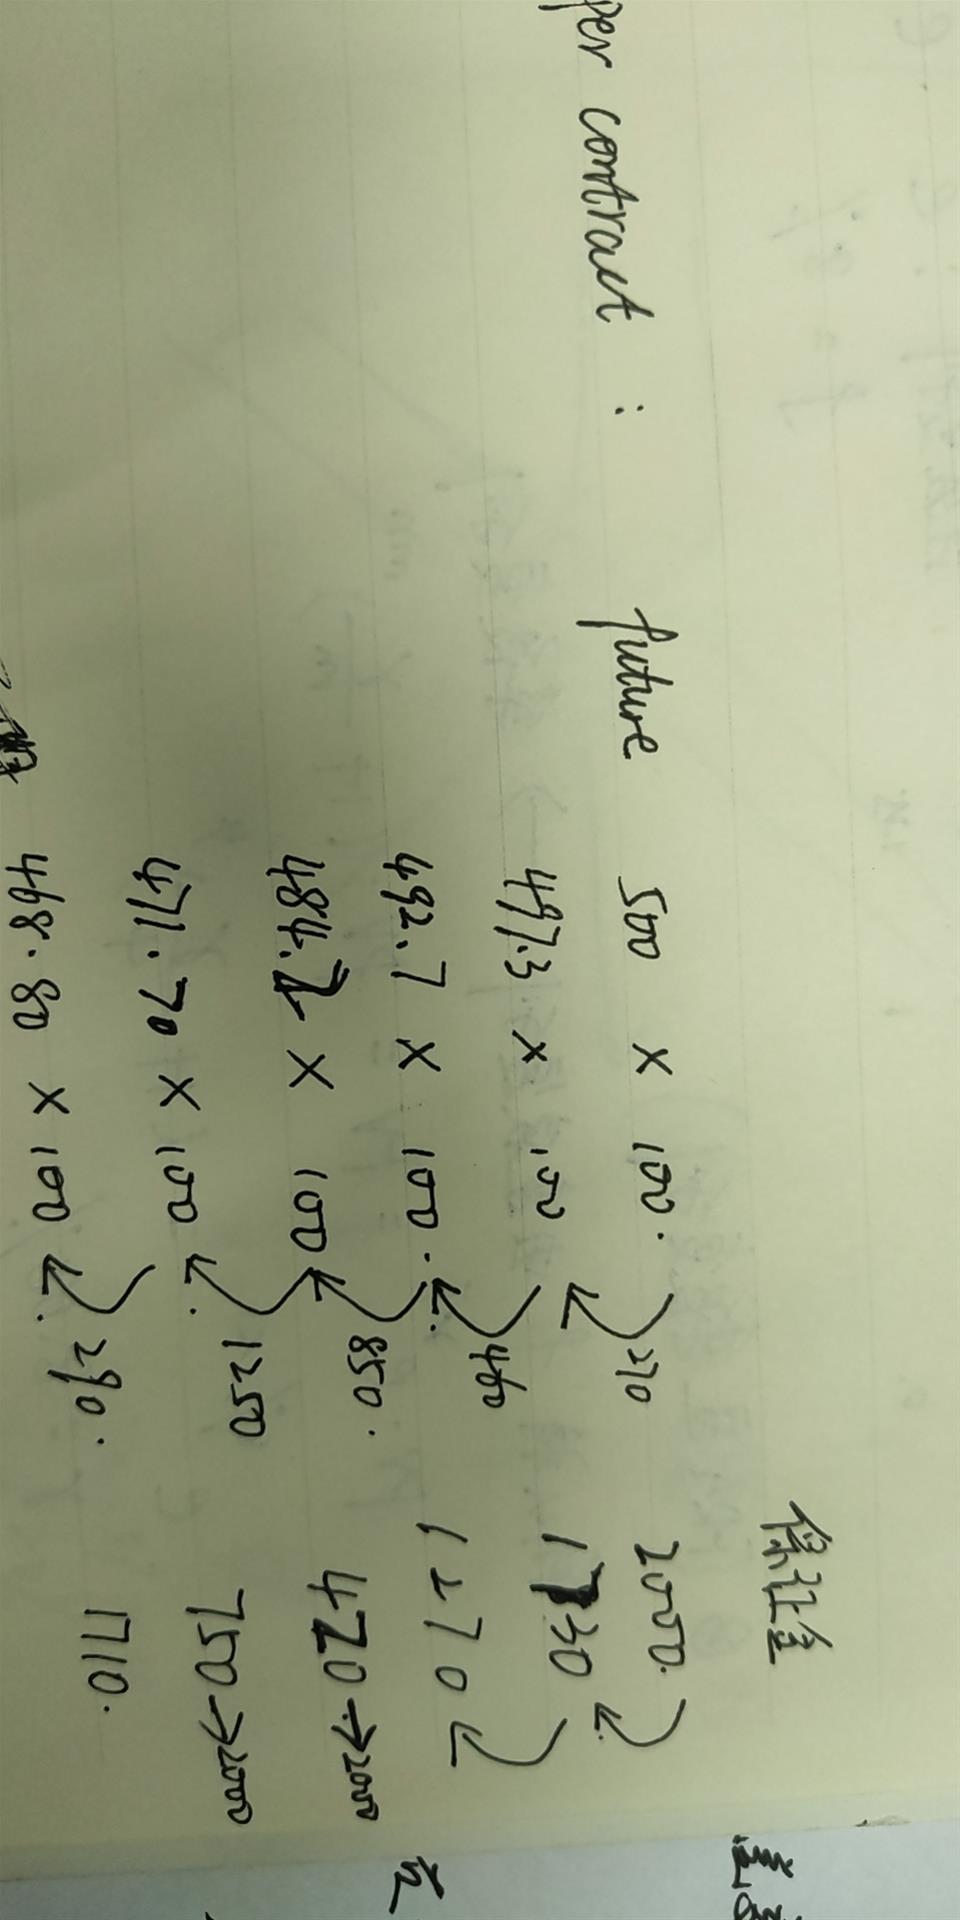 保証金
per contract : future 500 × 100. 2000.
270
497.3 × 100 1730
460
492.7 × 100. 1270
850.
484.2 × 100 420 → 2000
1250
471.70 × 100 750 → 2000
290.
468.80 × 100 1710.